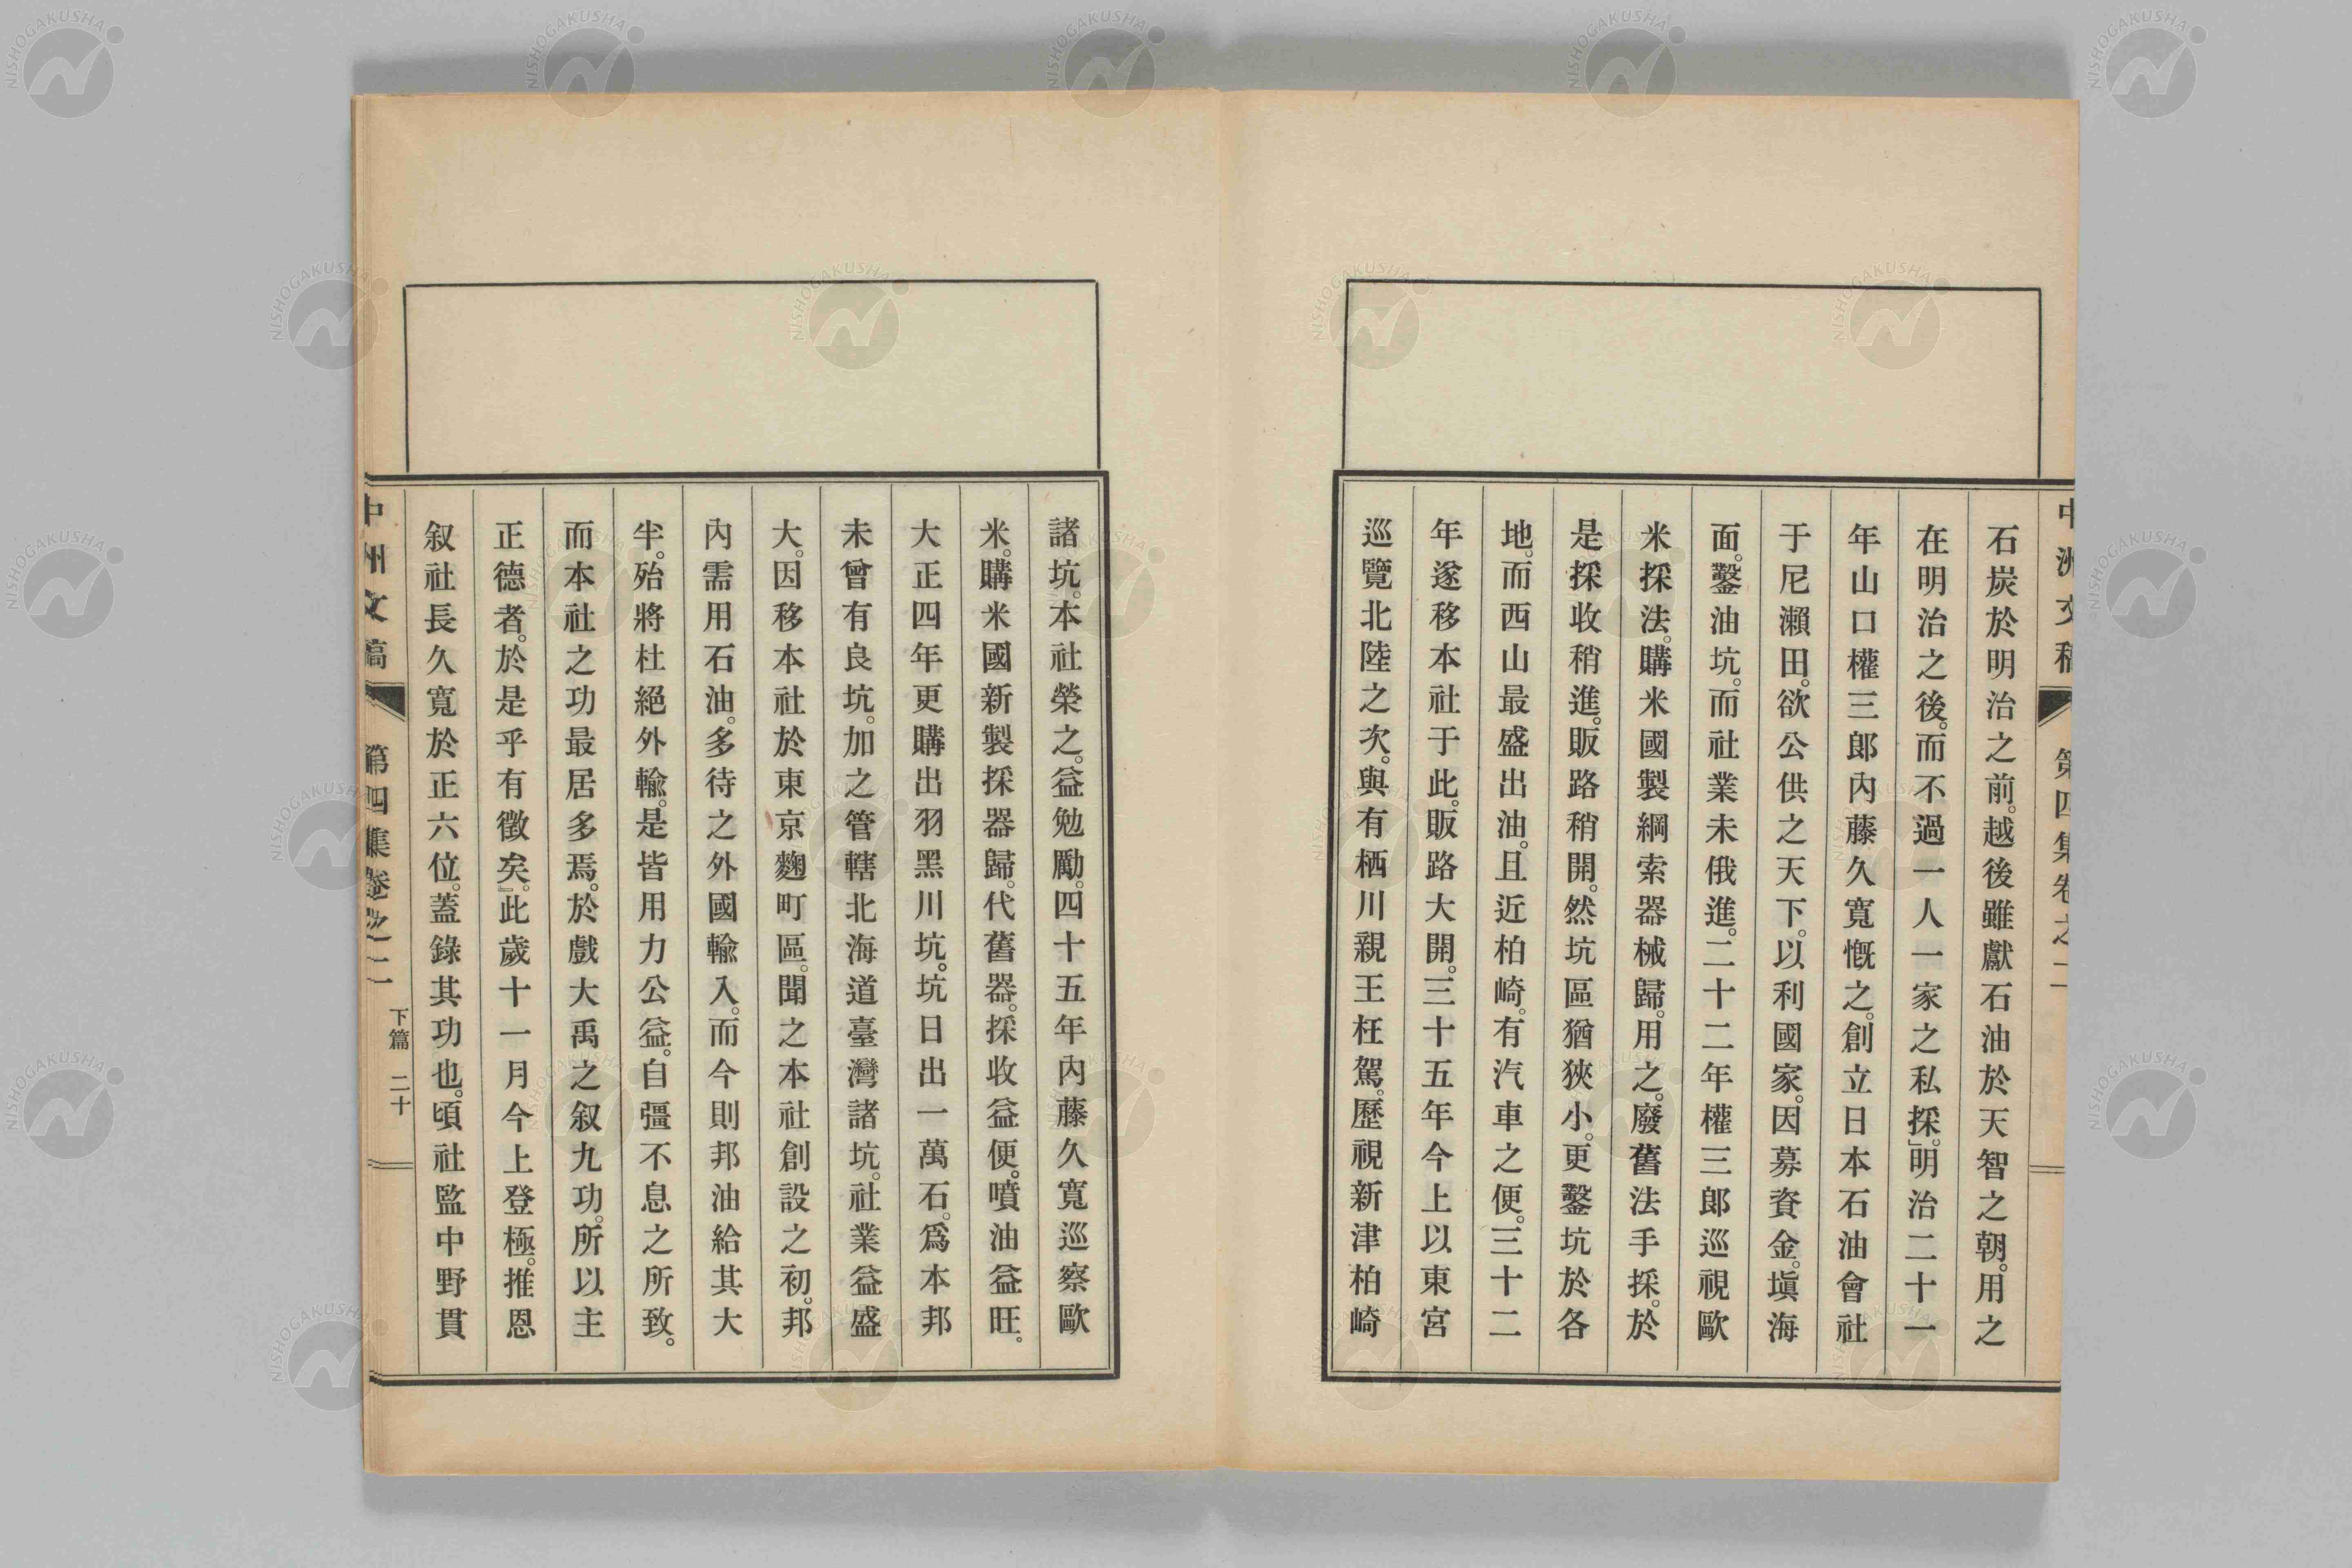 中洲文稿 第四集卷之二
石炭於明治之前。越後雖獻石油於天智之朝。用之
在明治之後。而不過一人一家之私採。』明治二十一
年山口權三郎內藤久寬慨之。創立日本石油會社
于尼瀨田。欲公供之天下。以利國家。因募資金。塡海
面。鑿油坑。而社業未俄進。二十二年權三郎巡視歐
米採法。購米國製綱索器械歸。用之。廢舊法手採。於
是採收稍進。販路稍開。然坑區猶狹小。更鑿坑於各
地。而西山最盛出油。且近柏崎。有汽車之便。三十二
年遂移本社于此。販路大開。三十五年今上以東宮
巡覽北陸之次。與有栖川親王枉駕。歷視新津柏崎
諸坑。本社榮之。益勉勵。四十五年內藤久寬巡察歐
米。購米國新製採器歸。代舊器。採收益便。噴油益旺。
大正四年更購出羽黑川坑。坑日出一萬石。爲本邦
未曾有良坑。加之管轄北海道臺灣諸坑。社業益盛
大。因移本社於東京麴町區。聞之本社創設之初。邦
內需用石油。多待之外國輸入。而今則邦油給其大
半。殆將杜絕外輸。是皆用力公益。自彊不息之所致。
而本社之功最居多焉。於戲大禹之叙九功。所以主
正德者。於是乎有徵矣。』此歲十一月今上登極。推恩
叙社長久寬於正六位。蓋錄其功也。頃社監中野貫
中洲文稿 第四集卷之二 下篇 二十
NISHOGAKUSHA